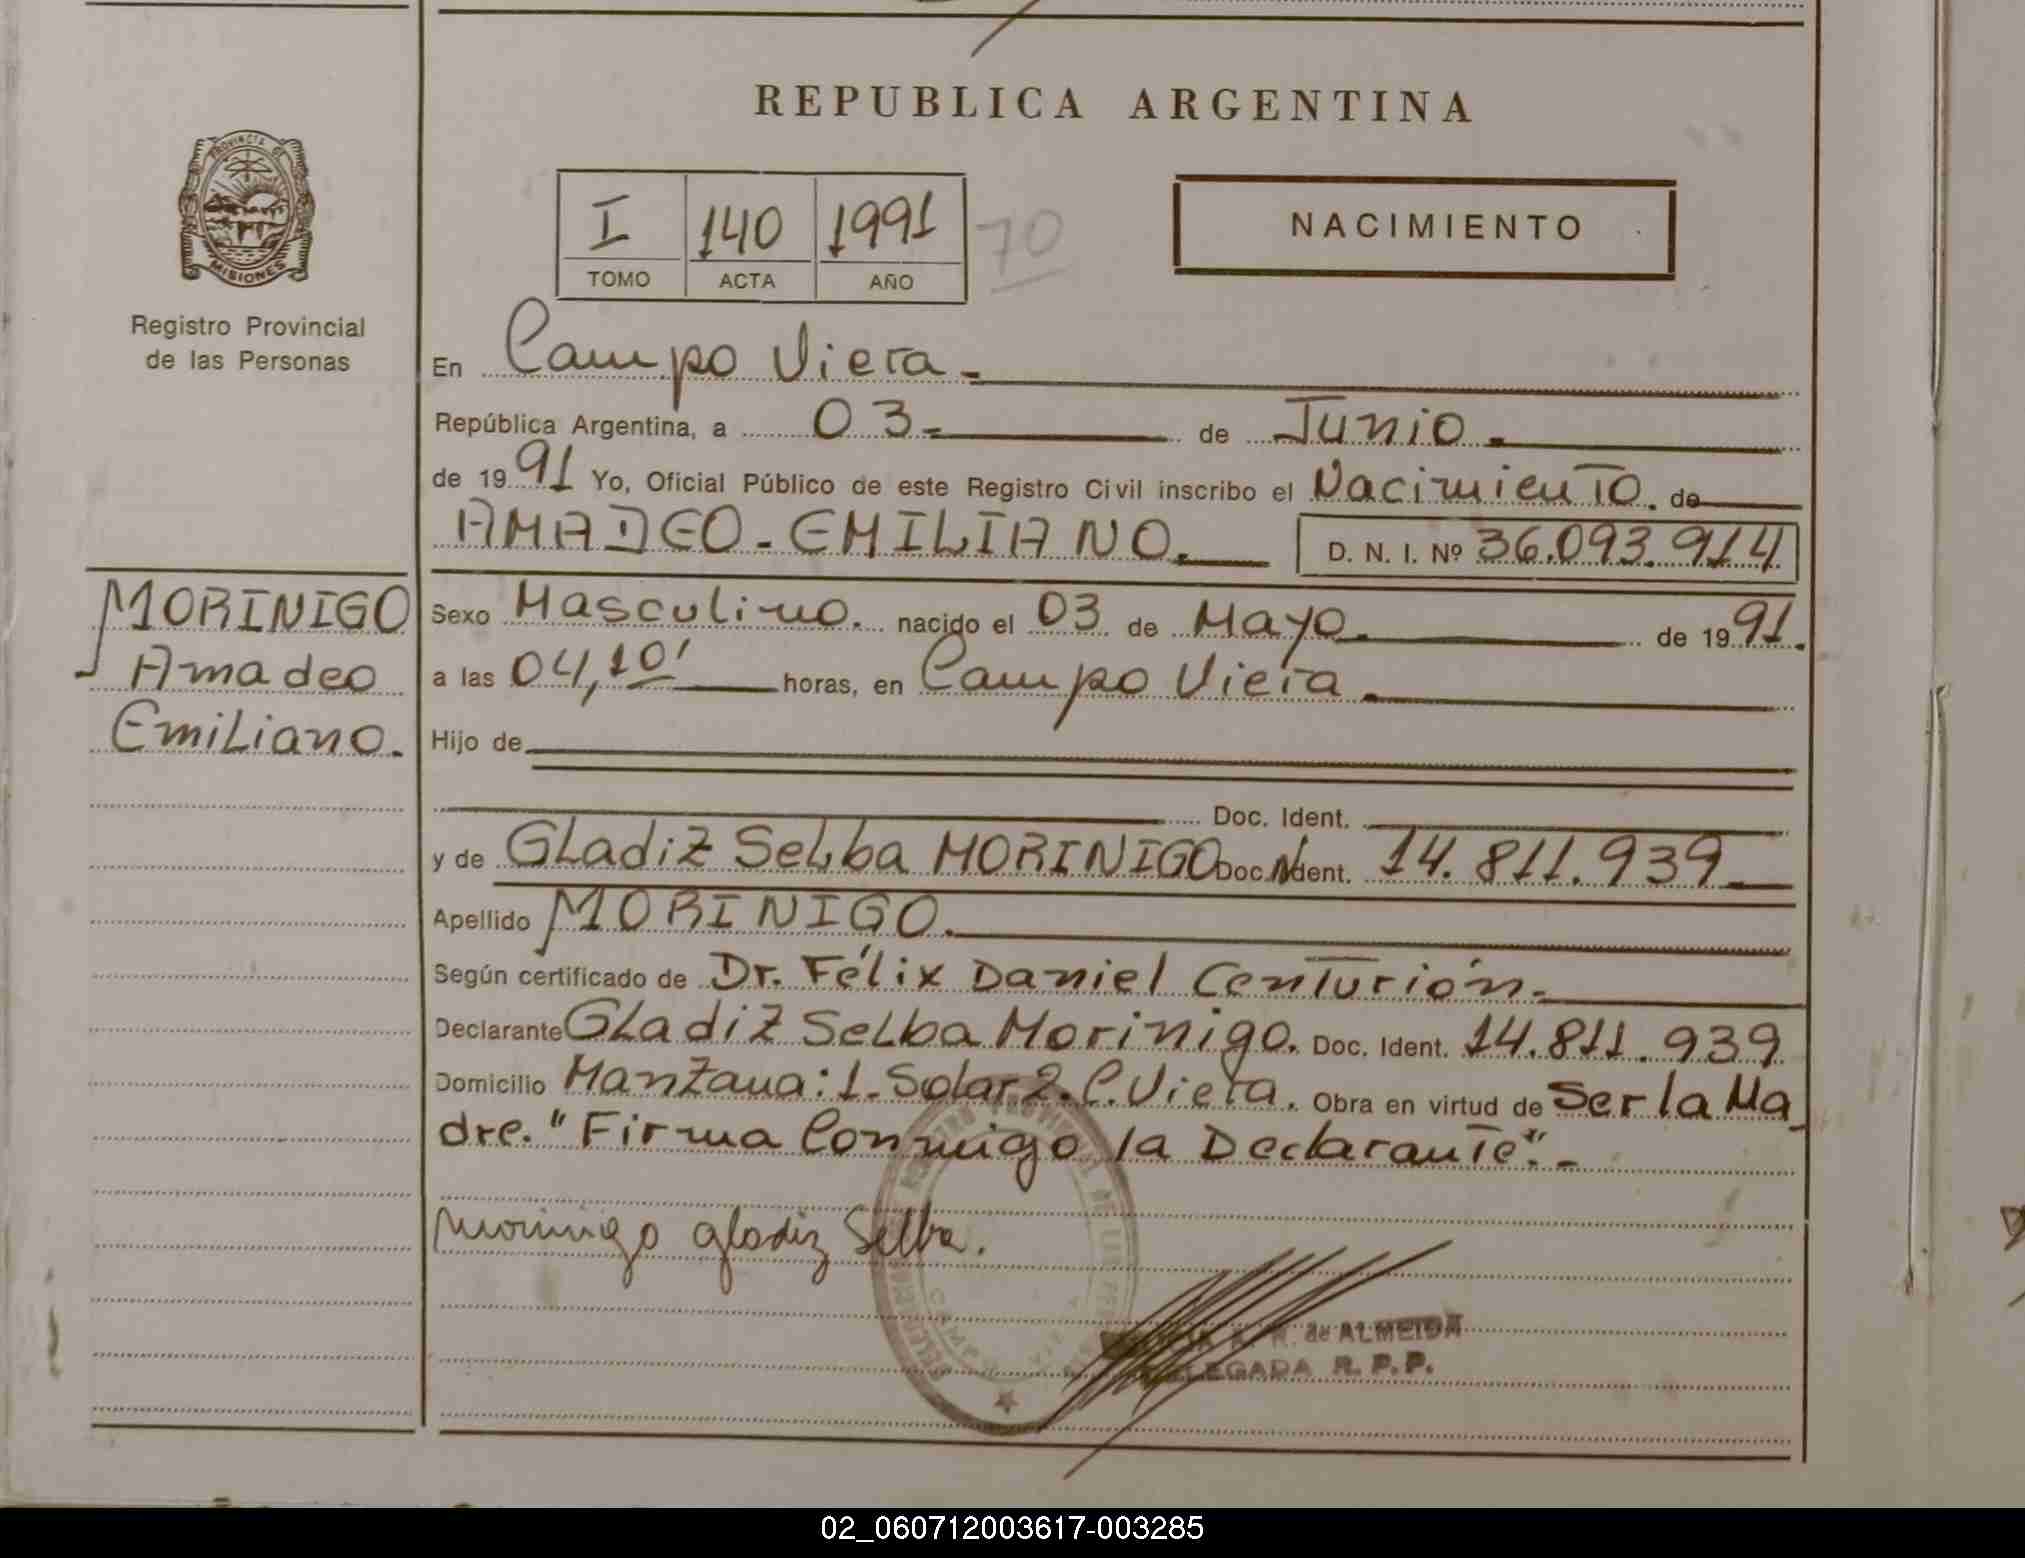 REPUBLICA ARGENTINA
PROVINCIA DE
MISIONES
Registro Provincial
de las Personas
I 140 1991 70
TOMO ACTA AÑO
NACIMIENTO
En Campo Viera.
República Argentina, a 03 de Junio.
de 1991 Yo, Oficial Público de este Registro Civil inscribo el Nacimiento. de
AMADEO-EMILIANO. D. N. I. Nº 36.093.914
MORINIGO
Amadeo
Emiliano.
Sexo Masculino. nacido el 03 de Mayo. de 1991.
a las 04,10' horas, en Campo Viera.
Hijo de
Doc. Ident.
y de Gladiz Selba MORINIGO Doc. Ident. 14.811.939
Apellido MORINIGO.
Según certificado de Dr. Félix Daniel Centurión.
Declarante Gladiz Selba Morinigo. Doc. Ident. 14.811.939
Domicilio Manzana: 1-Solar 2. C. Viera. Obra en virtud de Ser la Ma
dre. "Firma Conmigo la Declarante".-
Morinigo gladiz Selba.
de ALMEIDA
DELEGADA R. P. P.
02_060712003617-003285